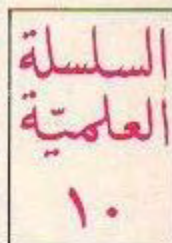 السلسلة
العلميّة
١٠